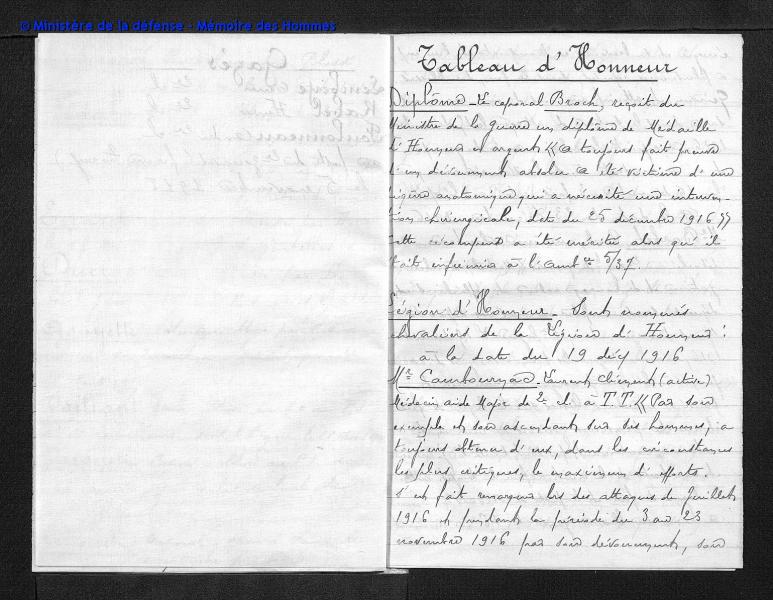 © Ministère de la défense - Mémoire des Hommes
Tableau d'Honneur
Diplôme - Le caporal Broch, reçoit du
Ministre de la Guerre un diplôme de Médaille
d'Honneur et argent « a toujours fait preuve
d'un dévouement absolu a été victime d'une
piqûre anatomique qui a nécessité une interven-
tion chirurgicale, date du 25 décembre 1916 »
Cette récompense a été méritée alors qu'il
était infirmier à l'Amb ce 5/37.
Légion d'Honneur - Sont nommés
chevaliers de la Légion d'Honneur :
à la date du 19 déc 1916
Mr - Laurent Clément (active)
Médecin aide Major de 2e cl à T.T. « Par son
exemple et son ascendant sur ses hommes, a
toujours obtenu d'eux, dans les circonstances
les plus critiques, le maximum d'efforts.
S'est fait remarquer lrs des attaques de Juillet
1916 et pendant la période du 3 au 23
novembre 1916 par son dévouement, son